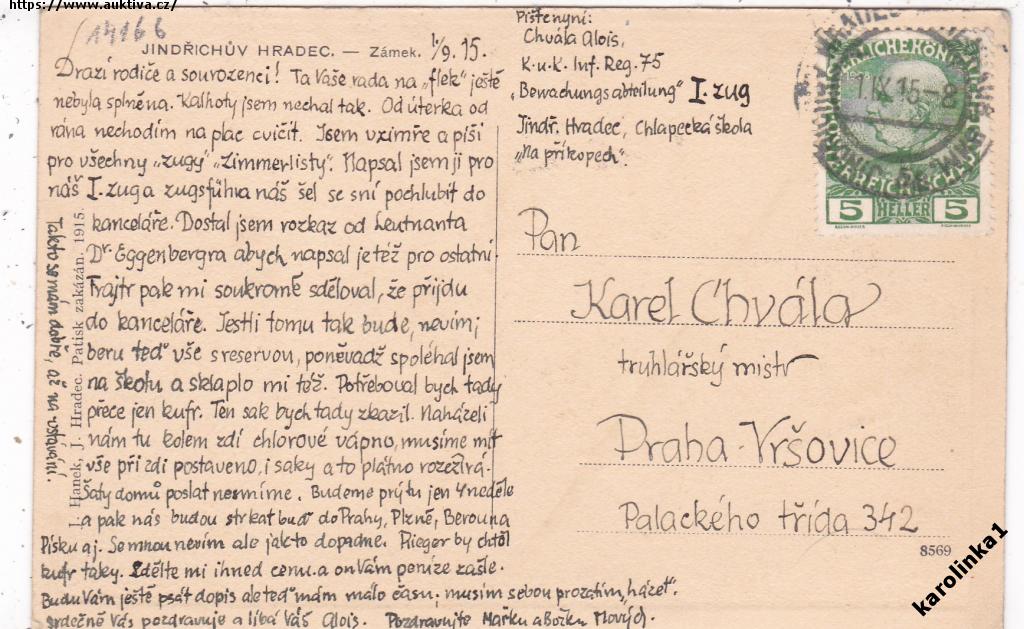 https://www.auktiva.cz/
14166
JINDŘICHŮV HRADEC. — Zámek. 1/9. 15.
Drazí rodiče a sourozenci! Ta Vaše rada na „flek" ještě
nebyla splněna. Kalhoty jsem nechal tak. Od úterka od
rána nechodím na plac cvičit. Jsem v zimře a píši
pro všechny „zugy" „Zimmerlisty". Napsal jsem ji pro
náš I. zug a zugsführa náš šel se sní pochlubit do
kanceláře. Dostal jsem rozkaz od Leutnanta
Dr. Eggenbergra abych napsal je též pro ostatní.
Frajtr pak mi soukromě sděloval, že přijdu
do kanceláře. Jestli tomu tak bude, nevím;
beru teď vše s reservou, poněvadž spoléhal jsem
na školu a sklaplo mi též. Potřeboval bych tady
přece jen kufr. Ten sak bych tady zkazil. Naházeli
nám tu kolem zdí chlorové vápno, musíme mít
vše při zdi postaveno, i saky a to plátno rozežírá.
Šaty domů poslat nesmíme. Budeme prý tu jen 4 neděle
a pak nás budou strkat buď do Prahy, Plzně, Berouna
Písku aj. Semnou nevím ale jak to dopadne. Rieger by chtěl
kufr taky. Sdělte mi ihned cenu a on Vám peníze zašle.
Budu Vám ještě psát dopis ale teď mám málo času; musím sebou prozatím „házet".
Srdečně Vás pozdravuje a líbá Váš Alois. Pozdravujte Mařku a Božku
Takto se mám dobře, až na vstávání.
J. Hanek, J. Hradec. Patisk zakázán. 1915.
Píšte nyní:
Chvála Alois,
K. u. k. Inf. Reg. 75
„Bewachungsabteilung" I. zug
Jindř. Hradec, Chlapecká škola
„Na příkopech".
1.IX.15-8
5 HELLER 5
Pan
Karel Chvála
truhlářský mistr
Praha-Vršovice
Palackého třída 342
8569
karolinka1